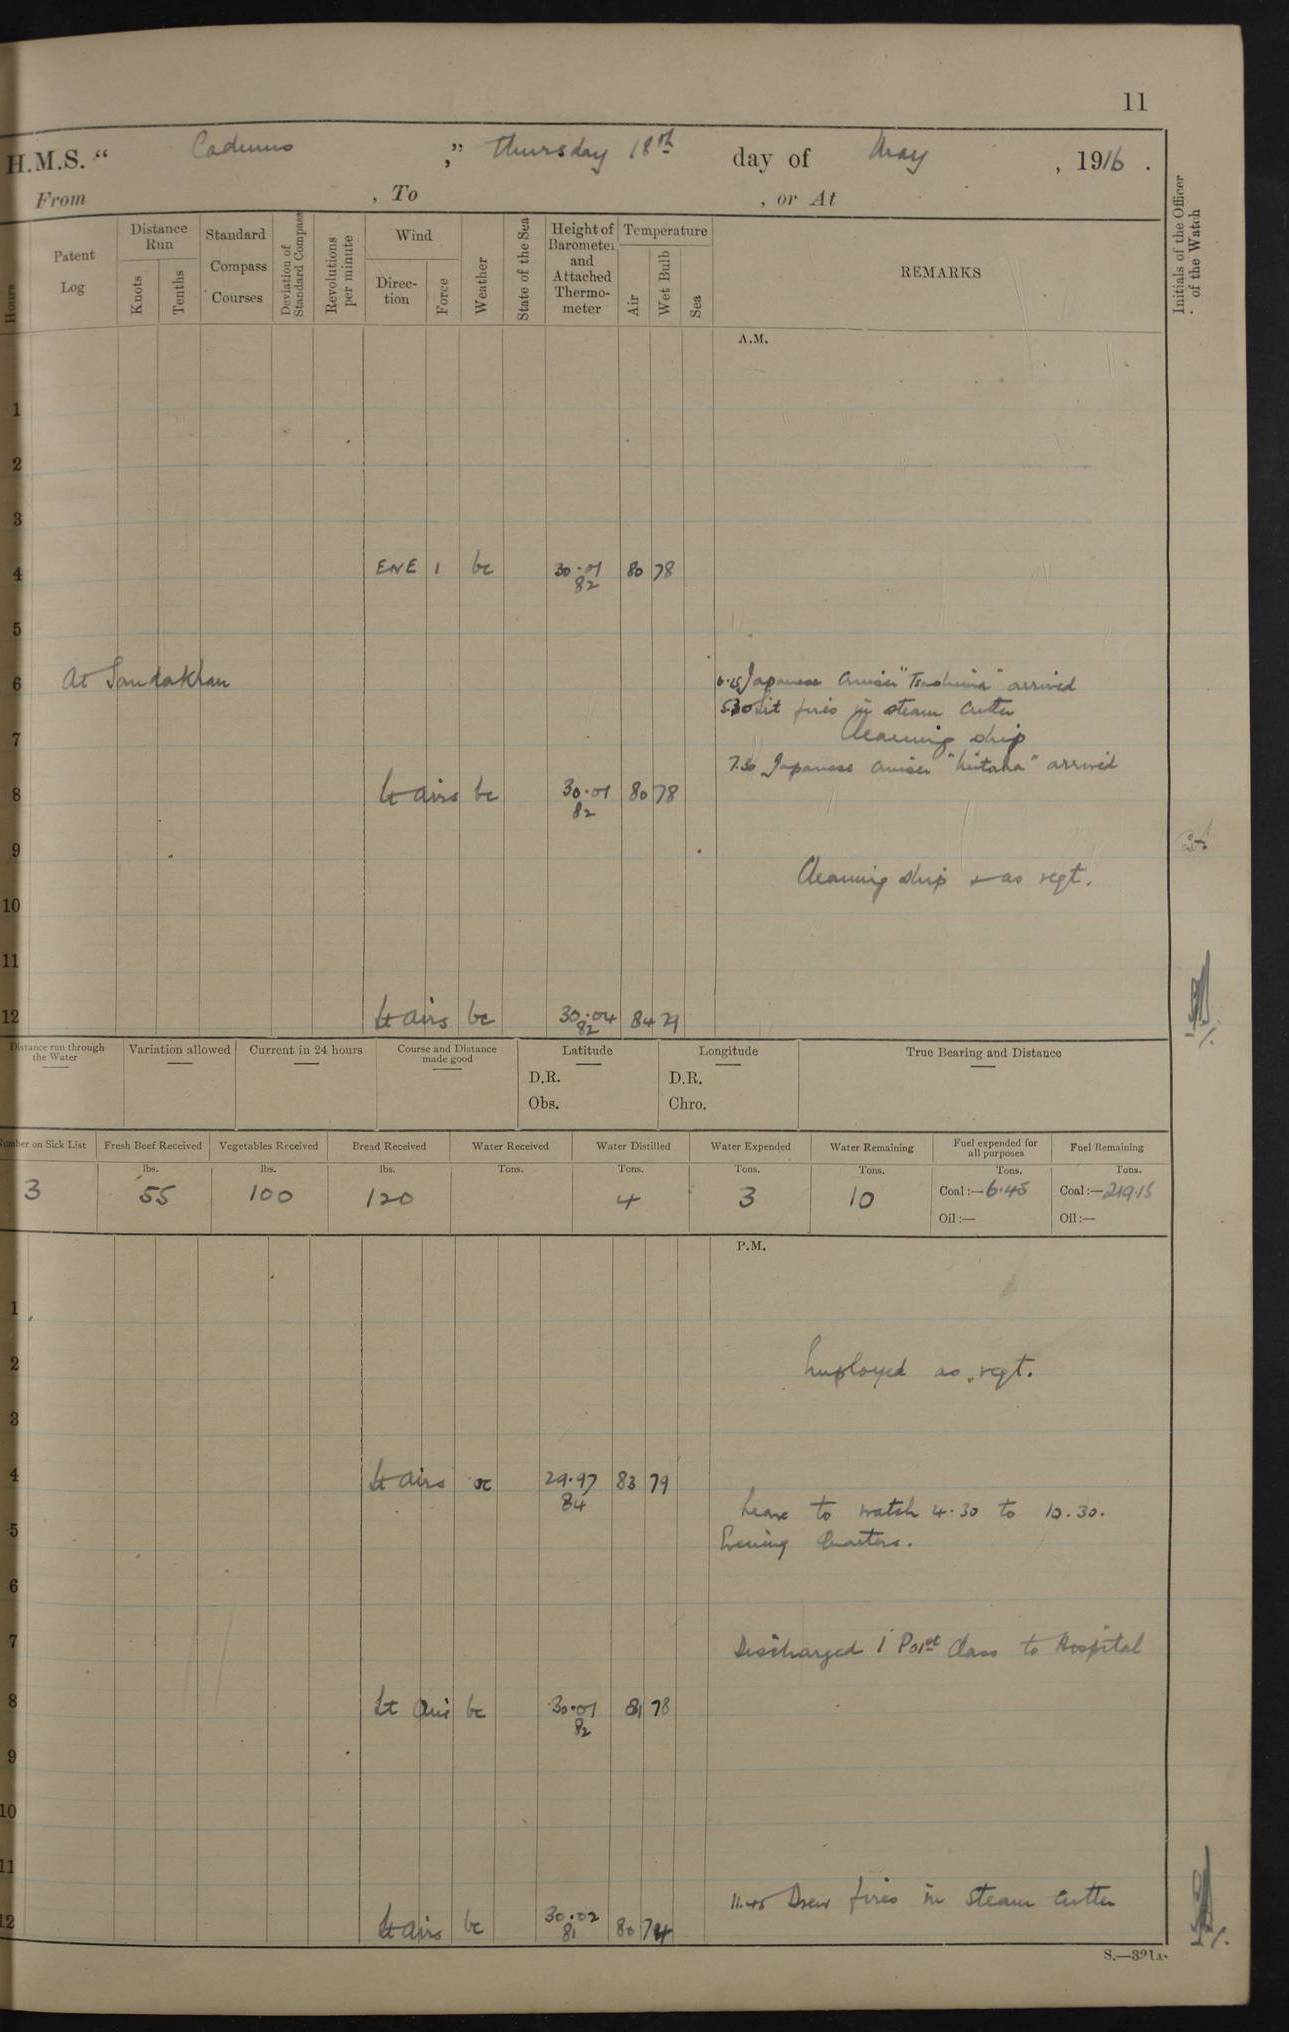 11
H.M.S. “ Cadmus ,” Thursday 18th day of May , 1916 .
From , To , or At
Hours
Patent Log
Distance Run
Knots
Tenths
Standard Compass Courses
Deviation of Standard Compass
Revolutions per minute
Wind
Direc- tion
Force
Weather
State of the Sea
Height of Barometer and Attached Thermo- meter
Temperature
Air
Wet Bulb
Sea
REMARKS
Initials of the Officer of the Watch
A.M.
1
2
3
4 ENE 1 bc 30.01 80 78
82
5
6 At Sandakhan
6.15 Japanese Cruiser "Tsushima" arrived
5.30 Lit fires in steam Cutter
7
Cleaning ship
7.30 Japanese Cruiser "Niitaka" arrived
8 Lt airs bc 30.01 80 78
82
9
Cleaning ship & as reqt.
10
11
12 Lt airs bc 30.04 84 79
82
Distance run through the Water
Variation allowed
Current in 24 hours
Course and Distance made good
Latitude
D.R.
Obs.
Longitude
D.R.
Chro.
True Bearing and Distance
Number on Sick List
Fresh Beef Received
Vegetables Received
Bread Received
Water Received
Water Distilled
Water Expended
Water Remaining
Fuel expended for all purposes
Fuel Remaining
lbs. lbs. lbs. Tons. Tons. Tons. Tons. Tons. Tons.
3 55 100 120 4 3 10 Coal :— 6.45 Coal :— 219.15
Oil :— Oil :—
P.M.
1
2 Employed as reqt.
3
4 Lt airs oc 29.97 83 79
84
Leave to watch 4.30 to 10.30.
5 Evening Quarters.
6
7 Discharged 1 PO 1st Class to Hospital
8 Lt Airs bc 30.01 81 78
82
9
10
11
11.45 Drew fires in Steam Cutter
12 Lt airs bc 30.02 80 74
81
S.—321A.